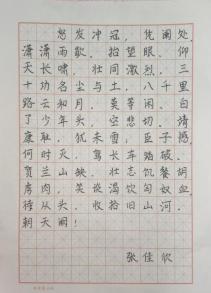 怒发冲冠，凭阑处
潇潇雨歇。抬望眼、仰
天长啸，壮同激烈。三
十功名尘与土，八千里
路云和月。莫等闲、白
了少年头，空悲切。靖
康耻，犹未雪。臣子憾，
何时灭，驾长车踏破、
贺兰山缺。壮志饥餐胡
虏肉，笑谈渴饮匈奴血。
待从头、收拾旧山河，
朝天阙！
张佳欣